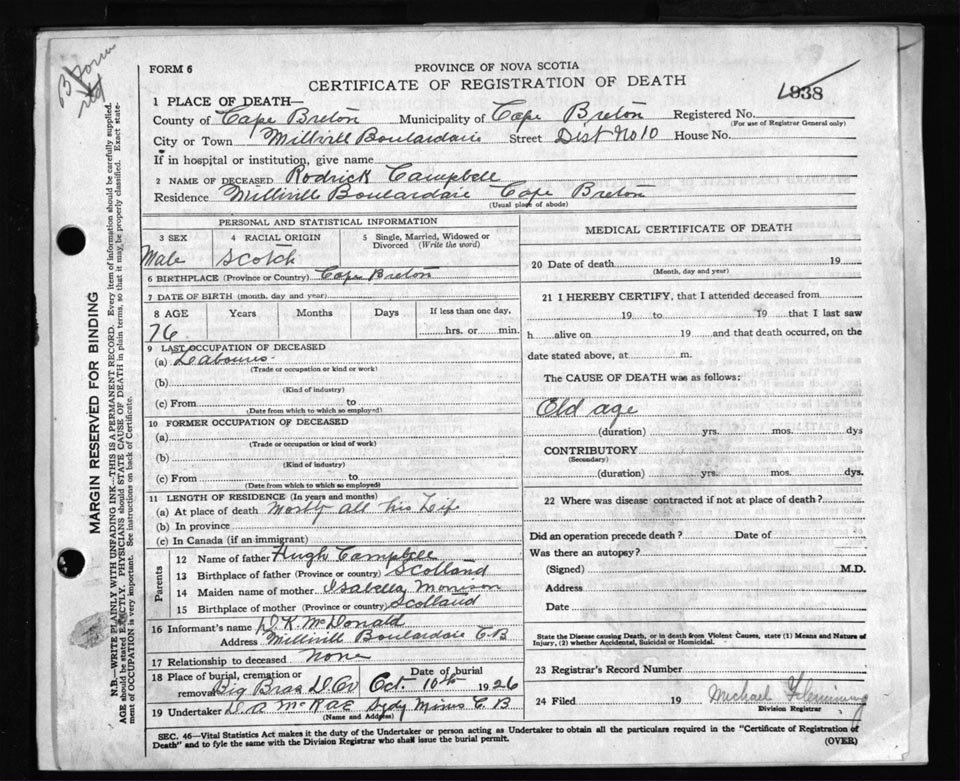 B Form
FORM 6
PROVINCE OF NOVA SCOTIA
CERTIFICATE OF REGISTRATION OF DEATH
1 PLACE OF DEATH— 1938
County of Cape Breton Municipality of Cape Breton Registered No.
(For use of Registrar General only)
City or Town Millvill Boulardarie Street Dist No 10 House No.
If in hospital or institution, give name
2 NAME OF DECEASED Rodrick Campbell
Residence Millville Boulardarie Cape Breton
(Usual place of abode)
PERSONAL AND STATISTICAL INFORMATION
3 SEX 4 RACIAL ORIGIN 5 Single, Married, Widowed or
Divorced (Write the word)
Male Scotch
6 BIRTHPLACE (Province or Country) Cape Breton
7 DATE OF BIRTH (month, day and year)
8 AGE Years Months Days If less than one day,
76 hrs. or min.
9 LAST OCCUPATION OF DECEASED
(a)
(Trade or occupation or kind or work)
(b)
(Kind of industry)
(c) From to
(Date from which to which so employed)
10 FORMER OCCUPATION OF DECEASED
(a)
(Trade or occupation or kind of work)
(b)
(Kind of industry)
(c) From to
(Date from which to which so employed)
11 LENGTH OF RESIDENCE (In years and months)
(a) At place of death Mostly all his Life
(b) In province
(c) In Canada (if an immigrant)
Parents
12 Name of father Hugh Campbell
13 Birthplace of father (Province or country) Scotland
14 Maiden name of mother Isabella Morrison
15 Birthplace of mother (Province or country) Scotland
16 Informant's name D. K. McDonald
Address Millvill Boulardarie C.B
17 Relationship to deceased None
18 Place of burial, cremation or Date of burial
removal Big Bras D Or Oct 10th 1926
19 Undertaker D. A McRae Sydy Mines C. B
(Name and Address)
MEDICAL CERTIFICATE OF DEATH
20 Date of death 19
(Month, day and year)
21 I HEREBY CERTIFY, that I attended deceased from
19 to 19 that I last saw
h alive on 19 and that death occurred, on the
date stated above, at m.
The CAUSE OF DEATH was as follows:
Old age
(duration) yrs. mos. dys
CONTRIBUTORY
(Secondary)
(duration) yrs. mos. dys.
22 Where was disease contracted if not at place of death?
Did an operation precede death? Date of
Was there an autopsy?
(Signed) M.D.
Address
Date
State the Disease causing Death, or in death from Violent Causes, state (1) Means and Nature of
Injury, (2) whether Accidental, Suicidal or Homicidal.
23 Registrar's Record Number
24 Filed 19 Michael Fleming
Division Registrar
SEC. 46—Vital Statistics Act makes it the duty of the Undertaker or person acting as Undertaker to obtain all the particulars required in the "Certificate of Registration of
Death" and to fyle the same with the Division Registrar who shall issue the burial permit. (OVER)
MARGIN RESERVED FOR BINDING
N.B.—WRITE PLAINLY WITH UNFADING INK—THIS IS A PERMANENT RECORD. Every item of information should be carefully supplied.
AGE should be stated EXACTLY. PHYSICIANS should STATE CAUSE OF DEATH in plain terms, so that it may be properly classified. Exact state-
ment of OCCUPATION is very important. See instructions on back of Certificate.